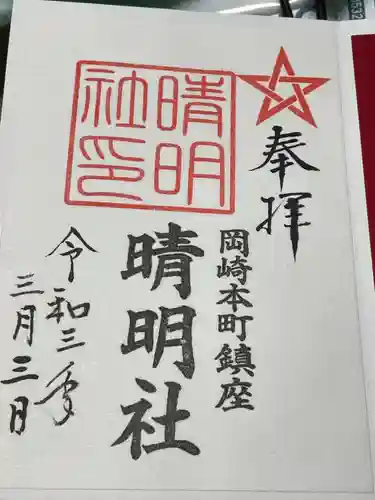 奉拝
岡崎本町鎮座
晴明社
晴明社印
令和三年
三月三日